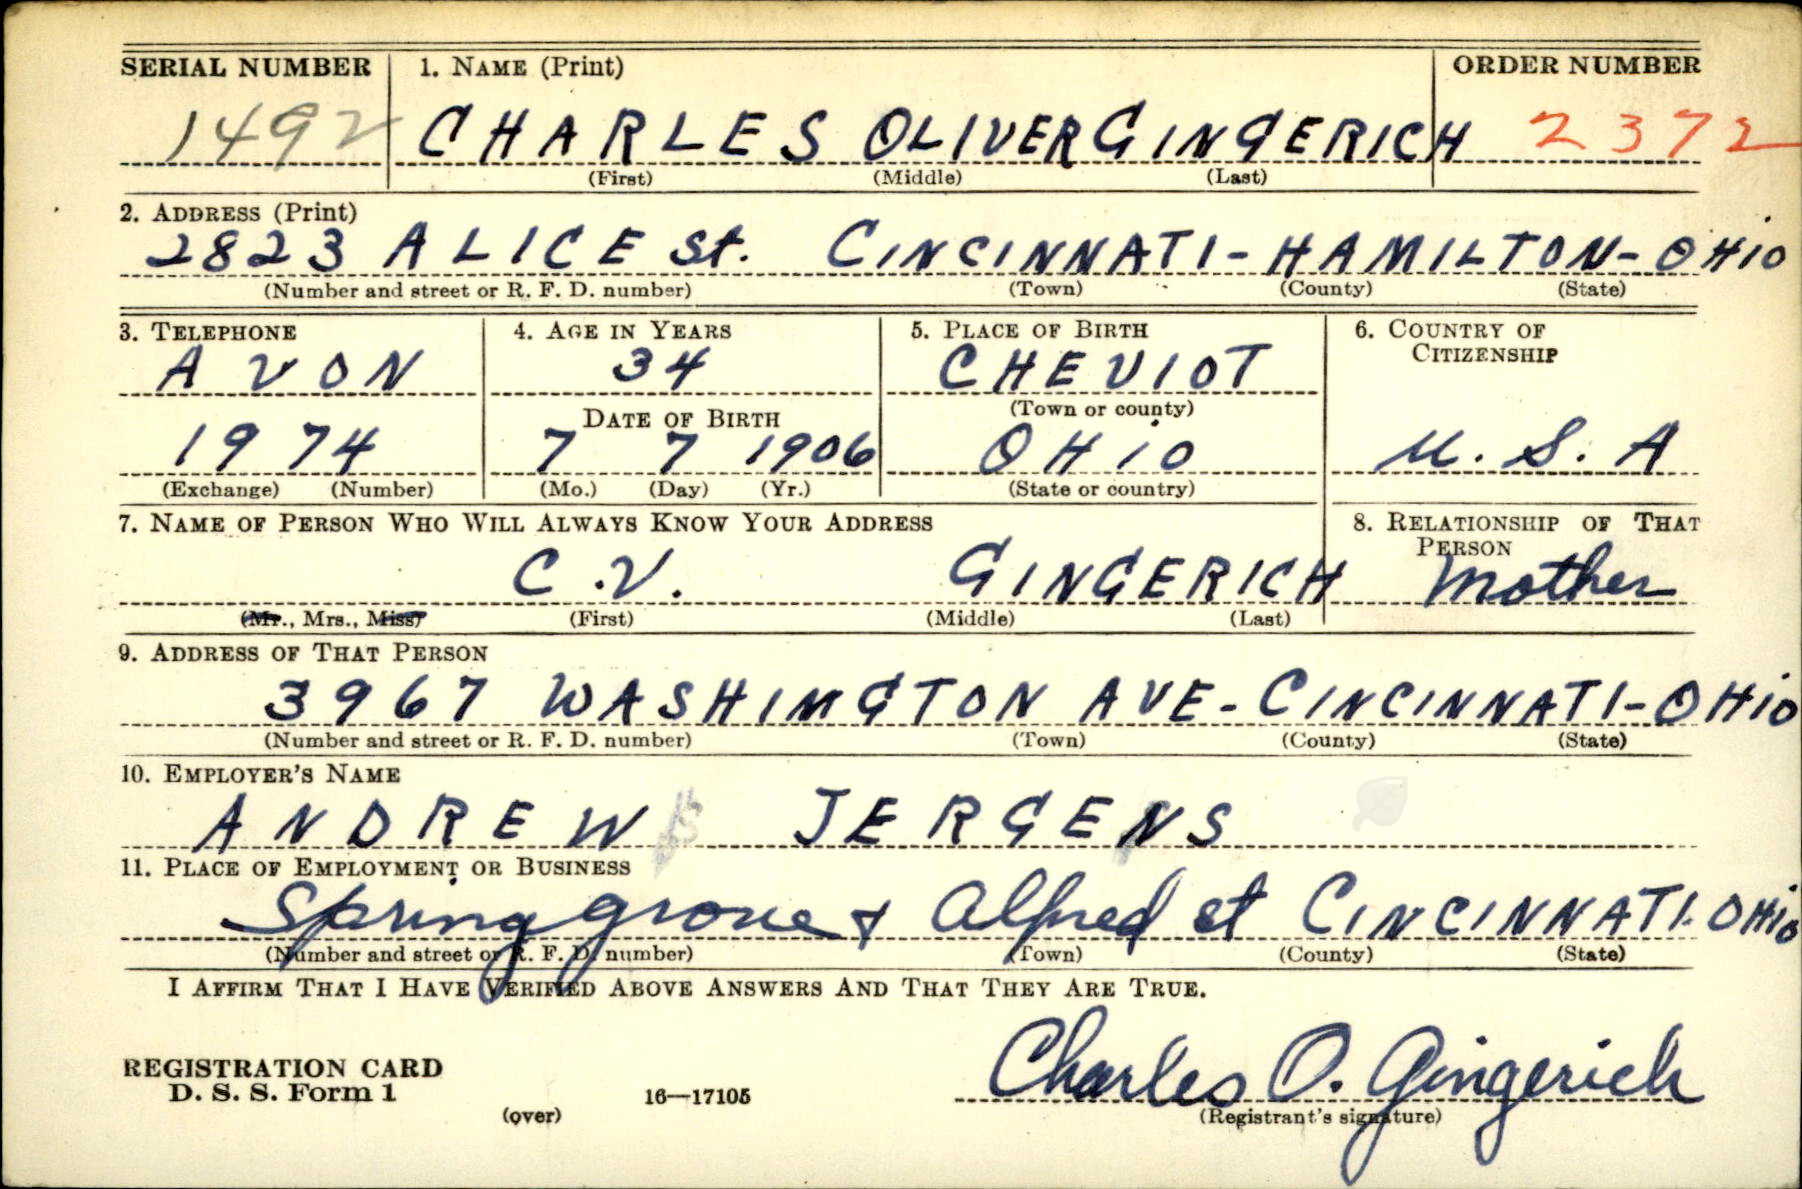 SERIAL NUMBER 1. NAME (Print) ORDER NUMBER
1492 CHARLES OLIVER GINGERICH 2372
(First) (Middle) (Last)
2. ADDRESS (Print)
2823 ALICE St. CINCINNATI-HAMILTON-OHIO
(Number and street or R. F. D. number) (Town) (County) (State)
3. TELEPHONE 4. AGE IN YEARS 5. PLACE OF BIRTH 6. COUNTRY OF CITIZENSHIP
AVON 34 CHEVIOT
DATE OF BIRTH (Town or county)
1974 7 7 1906 OHIO U.S.A
(Exchange) (Number) (Mo.) (Day) (Yr.) (State or country)
7. NAME OF PERSON WHO WILL ALWAYS KNOW YOUR ADDRESS 8. RELATIONSHIP OF THAT PERSON
C.V. GINGERICH Mother
(Mr., Mrs., Miss) (First) (Middle) (Last)
9. ADDRESS OF THAT PERSON
3967 WASHINGTON AVE-CINCINNATI-OHIO
(Number and street or R. F. D. number) (Town) (County) (State)
10. EMPLOYER'S NAME
ANDREW JERGENS
11. PLACE OF EMPLOYMENT OR BUSINESS
Spring grove & Alfred st CINCINNATI-OHIO
(Number and street or R. F. D. number) (Town) (County) (State)
I AFFIRM THAT I HAVE VERIFIED ABOVE ANSWERS AND THAT THEY ARE TRUE.
Charles O. Gingerich
REGISTRATION CARD
D. S. S. Form 1 (over) 16—17105 (Registrant's signature)